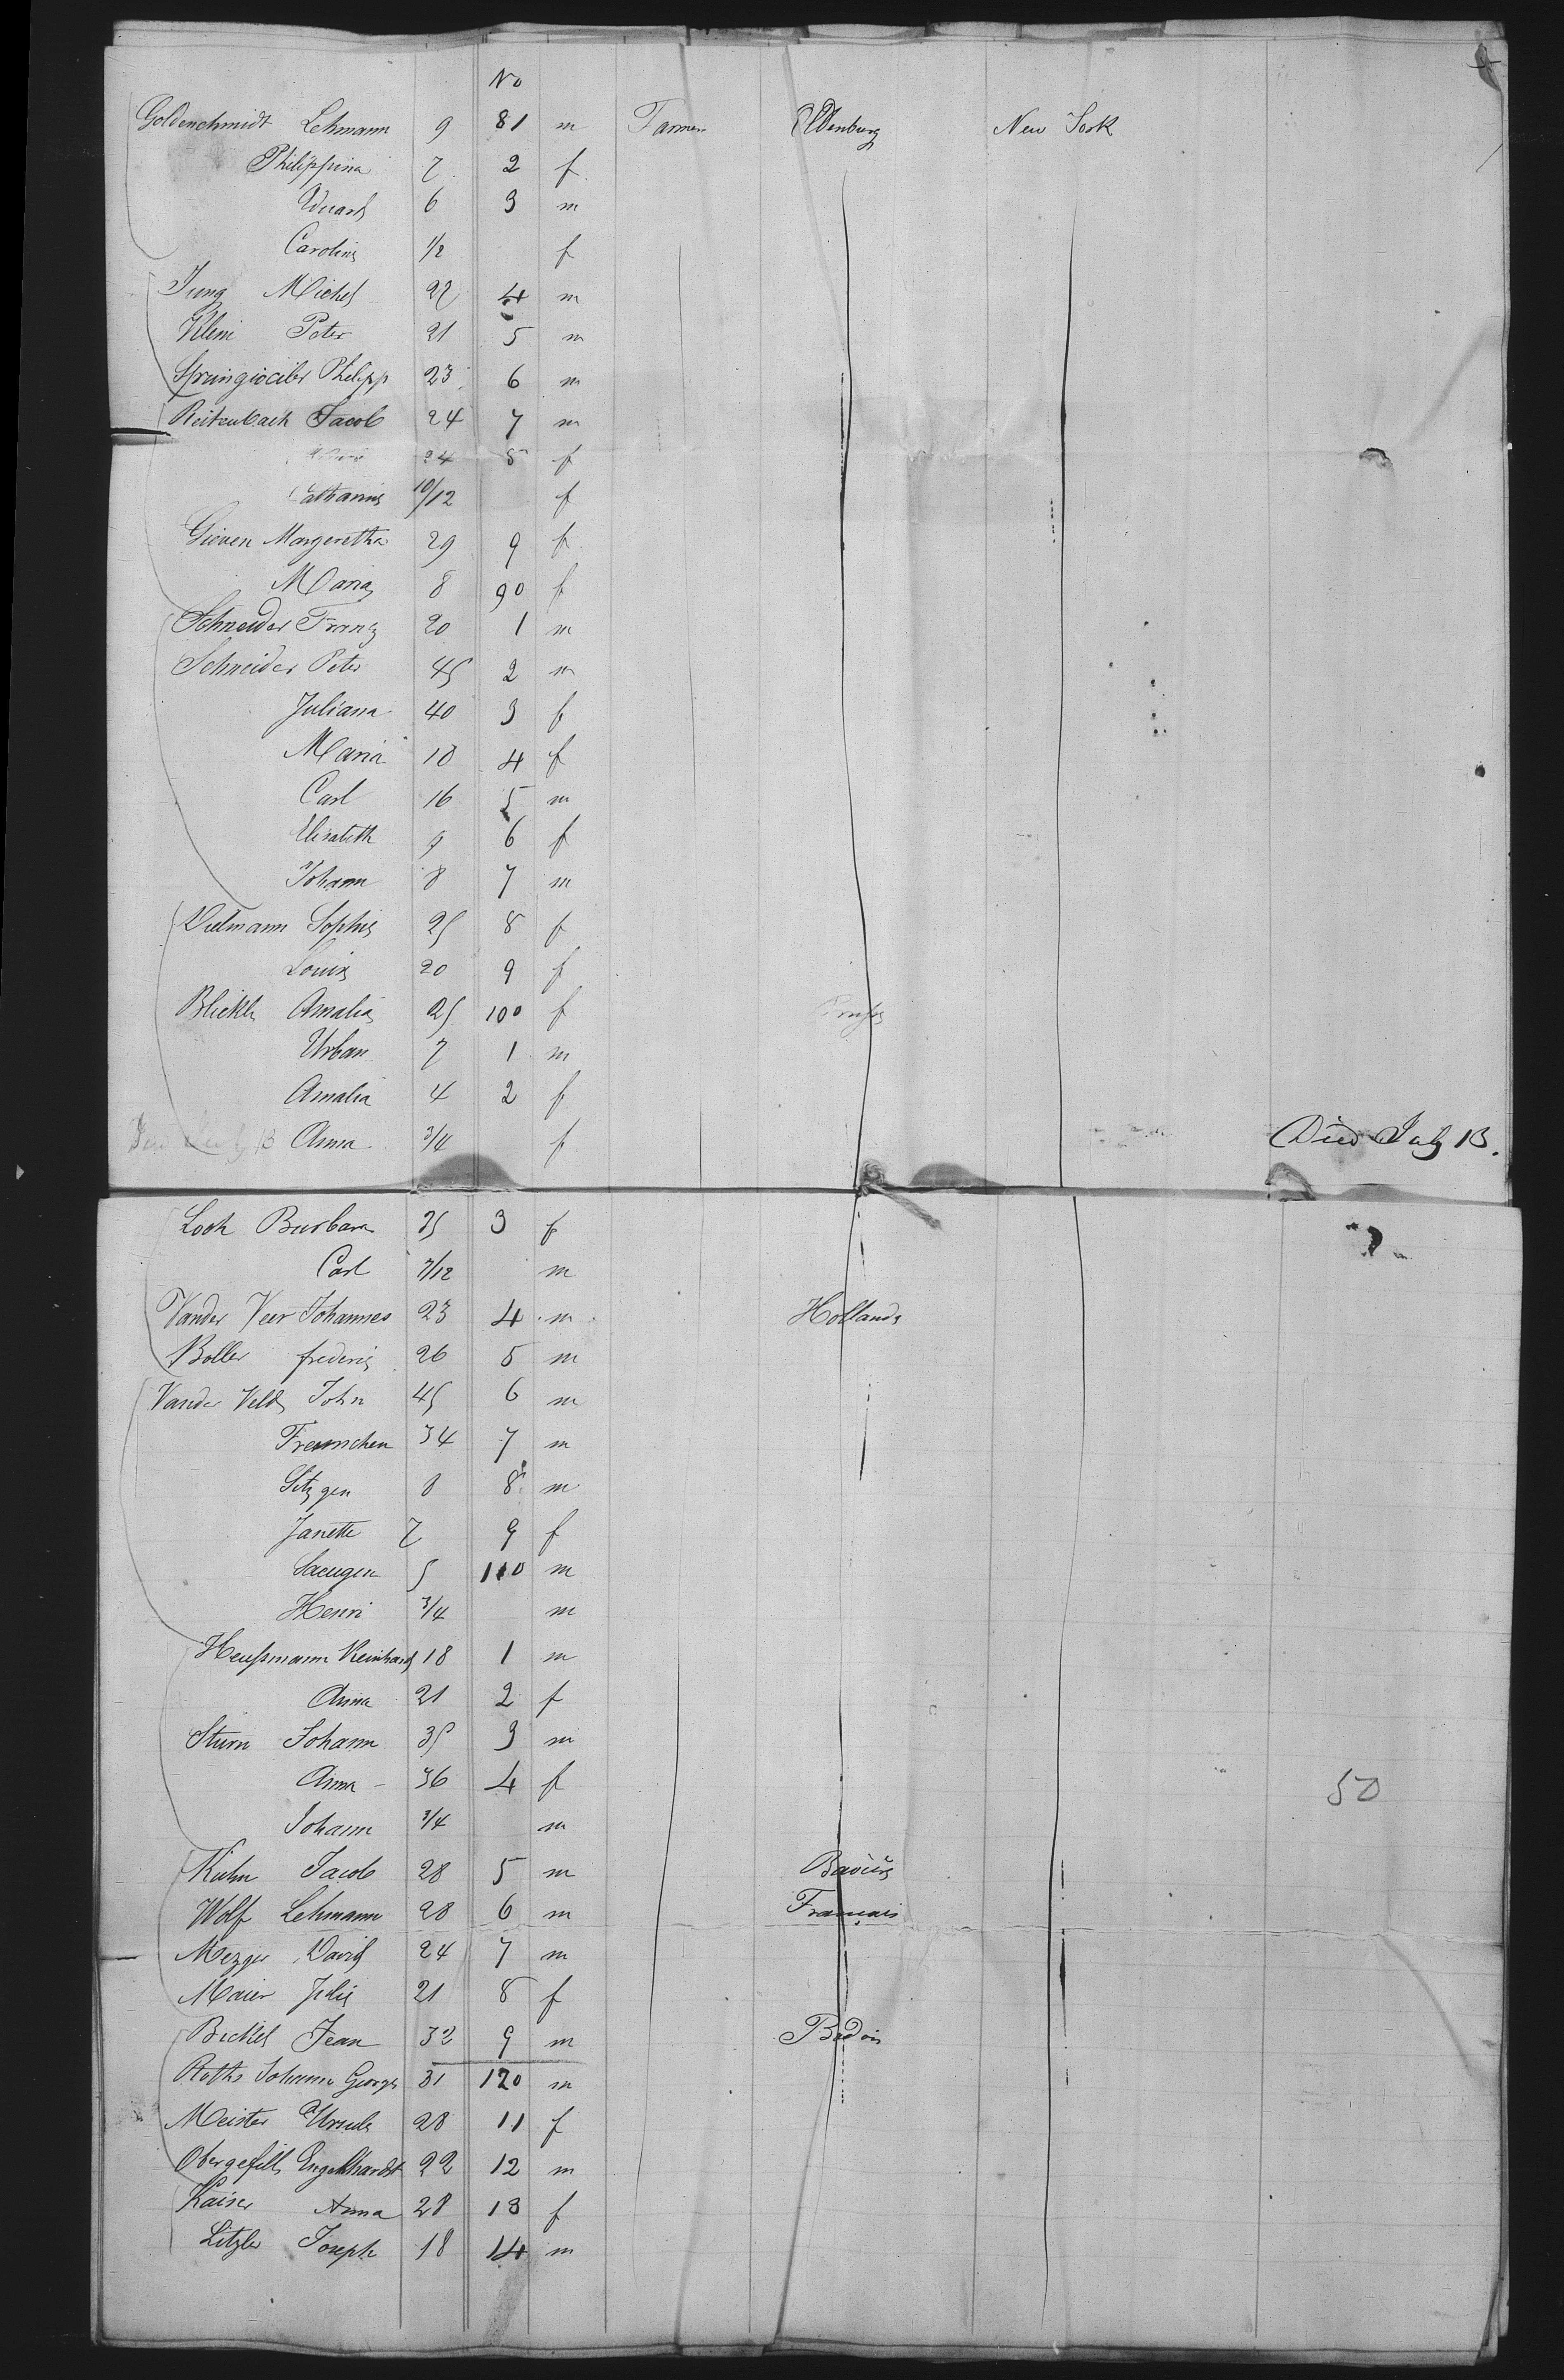 No
Goldenschmidt Lehmann 9 81 m Farmer Oldenburg New York
Philippina 7 2 f
Eduard 6 3 m
Carolina 1/2 f
Jung Michel 22 4 m
Klein Peter 21 5 m
Philipp 23 6 m
Reitenbach Jacob 24 7 m
24 8 f
Catharina 10/12 f
Gieven Margeretha 29 9 f
Maria 8 90 f
Schneider Franz 20 1 m
Schneider Peter 45 2 m
Juliana 40 3 f
Maria 18 4 f
Carl 16 5 m
Elisabeth 9 6 f
Johann 8 7 m
Dielmann Sophie 25 8 f
Louise 20 9 f
Blickle Amalia 25 100 f
Urban 7 1 m
Amalia 4 2 f
Died July 13 Anna 3/4 f Died July 13.
Look Barbara 25 3 f
Carl 7/12 m
Vander Veer Johannes 23 4 m Hollands
Boller frederic 26 5 m
Vander Velde John 45 6 m
Fremschen 34 7 m
Sitzgen 8 8 m
Janette 7 9 f
5 110 m
Henri 3/4 m
Heußmann Reinhard 18 1 m
Anna 21 2 f
Sturn Johann 35 3 m
Anna - 36 4 f 50
Johann 3/4 m
Kuhn Jacob 28 5 m
Wolf Lehmann 28 6 m Français
Mezger David 24 7 m
Maier Julie 21 8 f
Bickel Jean 32 9 m Badois
Roths Johann George 31 120 m
Meister Ursula 28 11 f
Obergefell Engelhardt 22 12 m
Kaiser Anna 28 13 f
Litzler Joseph 18 14 m